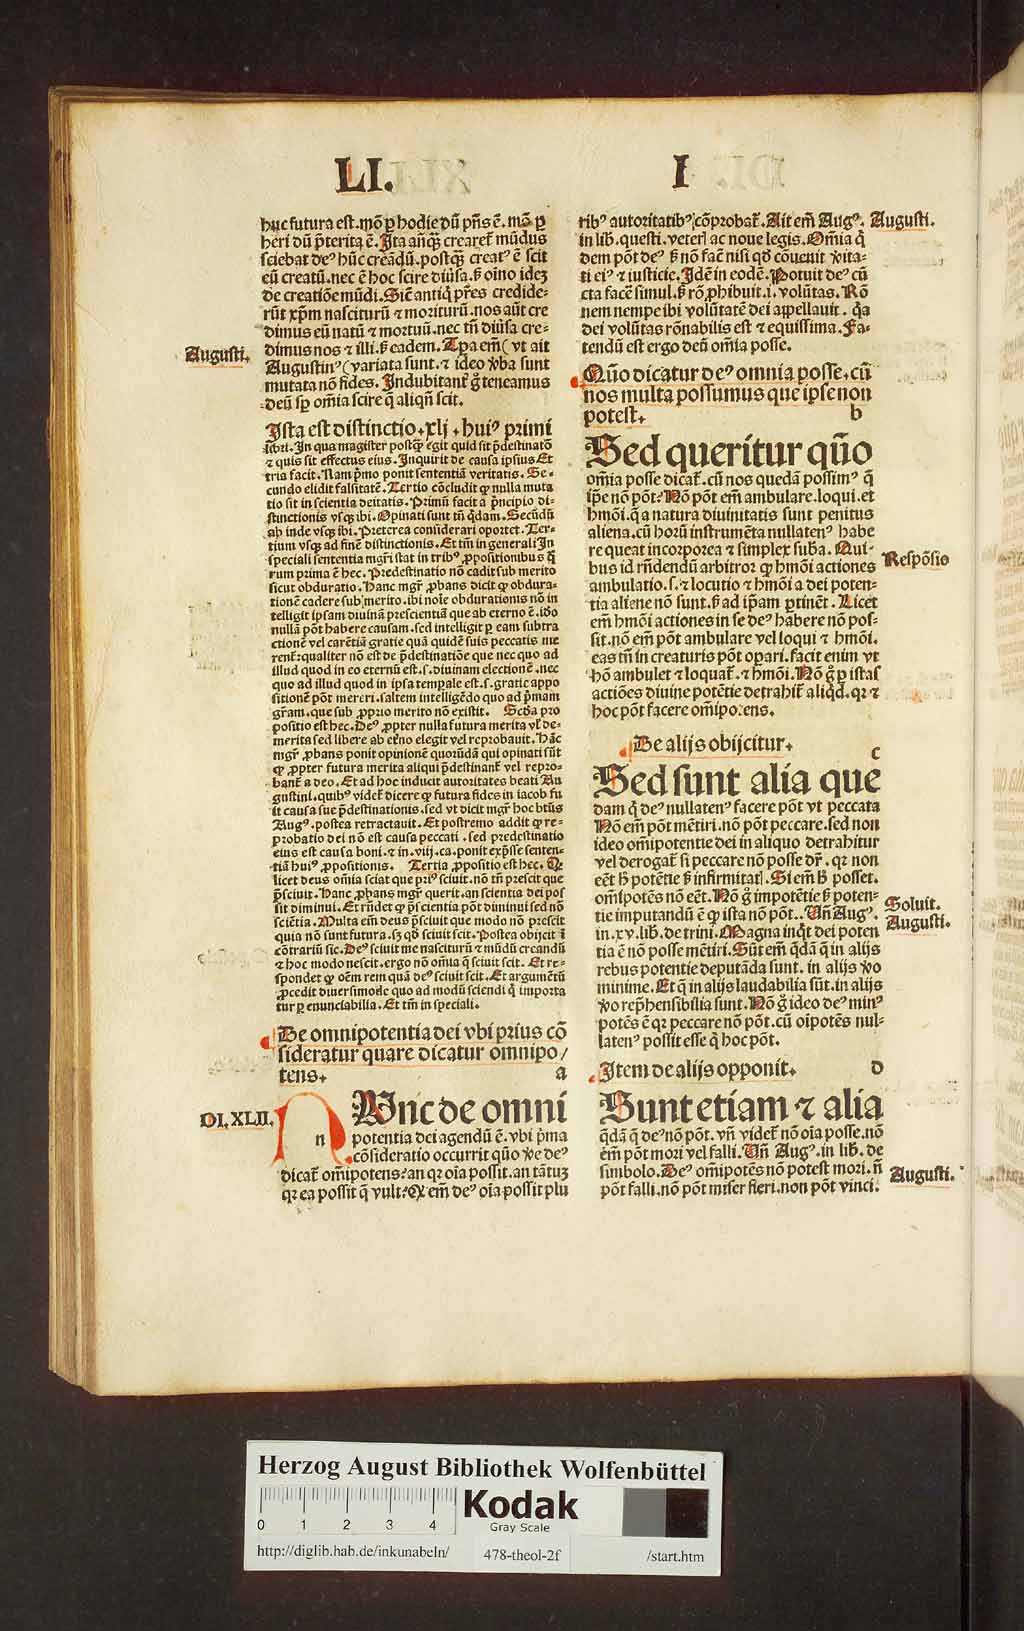 LI. I
huc futura est. mō ꝑ hodie dū pñs ē. mō ꝑ
heri dū p̄terita ē. Ita añq̃ꝫ crearet᷑ mūdus
sciebat deꝰ hūc creādū. postq̃ꝫ creatꝰ ē scit
eū creatū. nec ē hoc scire diuͥsa. s̄ oīno ideꝫ
de creatiōe mūdi. Sic̄ antiq̄ pr̄es credide-
rūt xp̄m nasciturū ⁊ moriturū. nos aūt cre
dimus eū natū ⁊ mortuū. nec tñ diūsa cre-
dimus nos ⁊ illi. s̄ eadem. Tpa em̄ ( vt ait
Augustinꝰ ( variata sunt. ⁊ ideo v̄ba sunt
mutata nō fides. Indubitant᷑ g̊ teneamus
deū sꝑ om̄ia scire q̄ aliqñ scit.
Augusti.
Ista est distinctio. xlj. huiꝰ primi
libri. In qua magister postq̃ꝫ egit quid sit p̄destinatō
⁊ quis sit effectus eius. Inquirit de causa ipsius Et
tria facit. Nam pͥmo ponit sententiā veritatis. Se-
cundo elidit falsitatē. Tertio cōcludit ꝙ nulla muta
tio sit in scientia deitatis. Primū facit a pͥncipio di-
stinctionis vsqꝫ ibi. Opinati sunt tñ q̄dam. Secūdū
ab inde vsqꝫ ibi. Preterea cōsiderari oportet. Ter-
tium vsqꝫ ad finē distinctionis. Et tm̄ in generali In
speciali sententia mgr̄i stat in tribꝰ ꝓpositionibus q̄
rum prima ē hec. Predestinatio nō cadit sub merito
sicut obduratio. Hanc mgr̄ ꝓbans dicit ꝙ obdura-
tionē cadere sub merito. ibi noīe obdurationis nō in
telligit ipsam diuinā prescientiā que ab eterno ē. iō
nullā pōt habere causam. sed intelligit ꝑ eam subtra
ctionē vel carētiā gratie quā quidē suis peccatis me
rent᷑: qualiter nō est de p̄destinatiōe que nec quo ad
illud quod in eo eternū est. s. diuinam electionē. nec
quo ad illud quod in ipsa temꝑale est. s. gratie appo
sitionē pōt mereri. saltem intelligēdo quo ad pͥmam
gr̄am. que sub ꝓprio merito nō existit. Scd̄a pro
positio est hec. Deꝰ ꝓpter nulla futura merita vl᷑ de-
merita sed libere ab et̄no elegit vel reprobauit. Hāc
mgr̄ ꝓbans ponit opinionē quorūdā qui opinati sūt
ꝙ ꝓpter futura merita aliqui p̄destinant᷑ vel repro-
bant᷑ a deo. Et ad hoc inducit autoritates beati Au
gustini. quibꝰ videt᷑ dicere ꝙ futura fides in iacob fu
it causa sue p̄destinationis. sed vt dicit mgr̄ hoc btūs
Augꝰ. postea retractauit. Et postremo addit ꝙ re-
probatio dei nō est causa peccati. sed predestinatio
eius est causa boni. ⁊ in. viij. ca. ponit exp̄sse senten-
tiā huiꝰ ꝓpositionis. Tertia ꝓpositio est hec. Q᷑
licet deus om̄ia sciat que priꝰ sciuit. nō tñ prescit que
p̄sciuit. Hanc ꝓbans mgr̄ querit. an scientia dei pos
sit diminui. Et rñdet ꝙ p̄scientia pōt diminui sed nō
sciētia. Multa em̄ deus p̄sciuit que modo nō prescit
quia nō sunt futura. sꝫ qd̄ sciuit scit. Postea obijcit ī
cōtrariū sic. Deꝰ sciuit me nasciturū ⁊ mūdū creandū
⁊ hoc modo nescit. ergo nō om̄ia q̄ sciuit scit. Et re-
spondet ꝙ oēm rem quā deꝰ sciuit scit. Et argumētū
ꝓcedit diuersimode quo ad modū sciendi q̄ importa
tur ꝑ enunciabilia. Et tm̄ in speciali.
De omnipotentia dei vbi prius cō
sideratur quare dicatur omnipo/
tens. a
DI. XLII.
n
Nnc de omni
potentia dei agendū ē. vbi pͥma
cōsideratio occurrit quō v̄e deꝰ
dicat᷑ om̄ipotens: an qꝛ oīa possit. an tātuꝫ
qꝛ ea possit q̄ vult: Q᷑ em̄ deꝰ oīa possit plu
ribꝰ autoritatibꝰ cōprobat᷑. Ait em̄ Augꝰ.
in lib. questi. veteꝝ ac noue legis. Om̄ia q̄
dem pōt deꝰ s̄ nō facit nisi qd̄ conuenit v̄ita-
ti eiꝰ ⁊ iusticie. Idē in eodē. Potuit deꝰ cū
cta facē simul. s̄ rō ꝓhibuit. i. volūtas. Rō
nem nempe ibi volūtatē dei appellauit. q̄a
dei volūtas rōnabilis est ⁊ equissima. Fa-
tendū est ergo deū om̄ia posse.
Augusti.
Quō dicatur deꝰ omnia posse. cū
nos multa possumus que ipse non
potest. b
Sed queritur quō
om̄ia posse dicat᷑. cū nos quedā possimꝰ q̄
ip̄e nō pōt: Nō pōt em̄ ambulare. loqui. et
hm̄oi. q̄a natura diuinitatis sunt penitus
aliena. cū horū instrumēta nullatenꝰ habe
re queat incorporea ⁊ simplex sub̄a. Qui-
bus id rñdendū arbitror ꝙ hm̄oi actiones
ambulatio. s. ⁊ locutio ⁊ hm̄oi a dei poten-
tia aliene nō sunt. s̄ ad ip̄am ꝑtinēt. Licet
em̄ hm̄oi actiones in se deꝰ habere nō pos-
sit. nō em̄ pōt ambulare vel loqui ⁊ hm̄oi.
eas tñ in creaturis pōt oꝑari. facit enim vt
hō ambulet ⁊ loquat᷑. ⁊ hm̄oi. Nō g̊ ꝑ istas
actiōes diuine potētie detrahit᷑ aliqd̄. qꝛ ⁊
hoc pōt facere om̄ipotens.
Respōsio
De alijs obijcitur. c
Sed sunt alia que
dam q̄ deꝰ nullatenꝰ facere pōt vt peccata
Nō em̄ pōt mētiri. nō pōt peccare. sed non
ideo om̄ipotentie dei in aliquo detrahitur
vel derogat᷑ si peccare nō posse dr̄. qꝛ non
eēt h̄ potētie s̄ infirmitatꝭ. Si em̄ h̄ posset.
om̄ipotēs nō eēt. Nō g̊ impotētie s̄ poten-
tie imputandū ē ꝙ ista nō pōt. Uñ Augꝰ.
in. xv. lib. de trini. Magna inqͥt dei poten
tia ē nō posse mētiri. Sūt em̄ q̄dā q̄ in alijs
rebus potentie deputāda sunt. in alijs v̄o
minime. Et q̄ in alijs laudabilia sūt. in alijs
v̄o rep̄hensibilia sunt. Nō g̊ ideo deꝰ minꝰ
potēs ē qꝛ peccare nō pōt. cū oīpotēs nul-
latenꝰ possit esse q̄ hoc pōt.
Soluit.
Augusti.
Item de alijs opponit. d
Sunt etiam ⁊ alia
q̄dā q̄ deꝰ nō pōt. vñ videt᷑ nō oīa posse. nō
em̄ pōt mori vel falli. Uñ Augꝰ. in lib. de
simbolo. Deꝰ om̄ipotēs nō potest mori. ñ
pōt falli. nō pōt miser fieri. non pōt vinci.
Augusti.
Herzog August Bibliothek Wolfenbüttel
0 1 2 3 4
Kodak
Gray Scale
http://diglib.hab.de/inkunabeln/ 478-theol-2f /start.htm